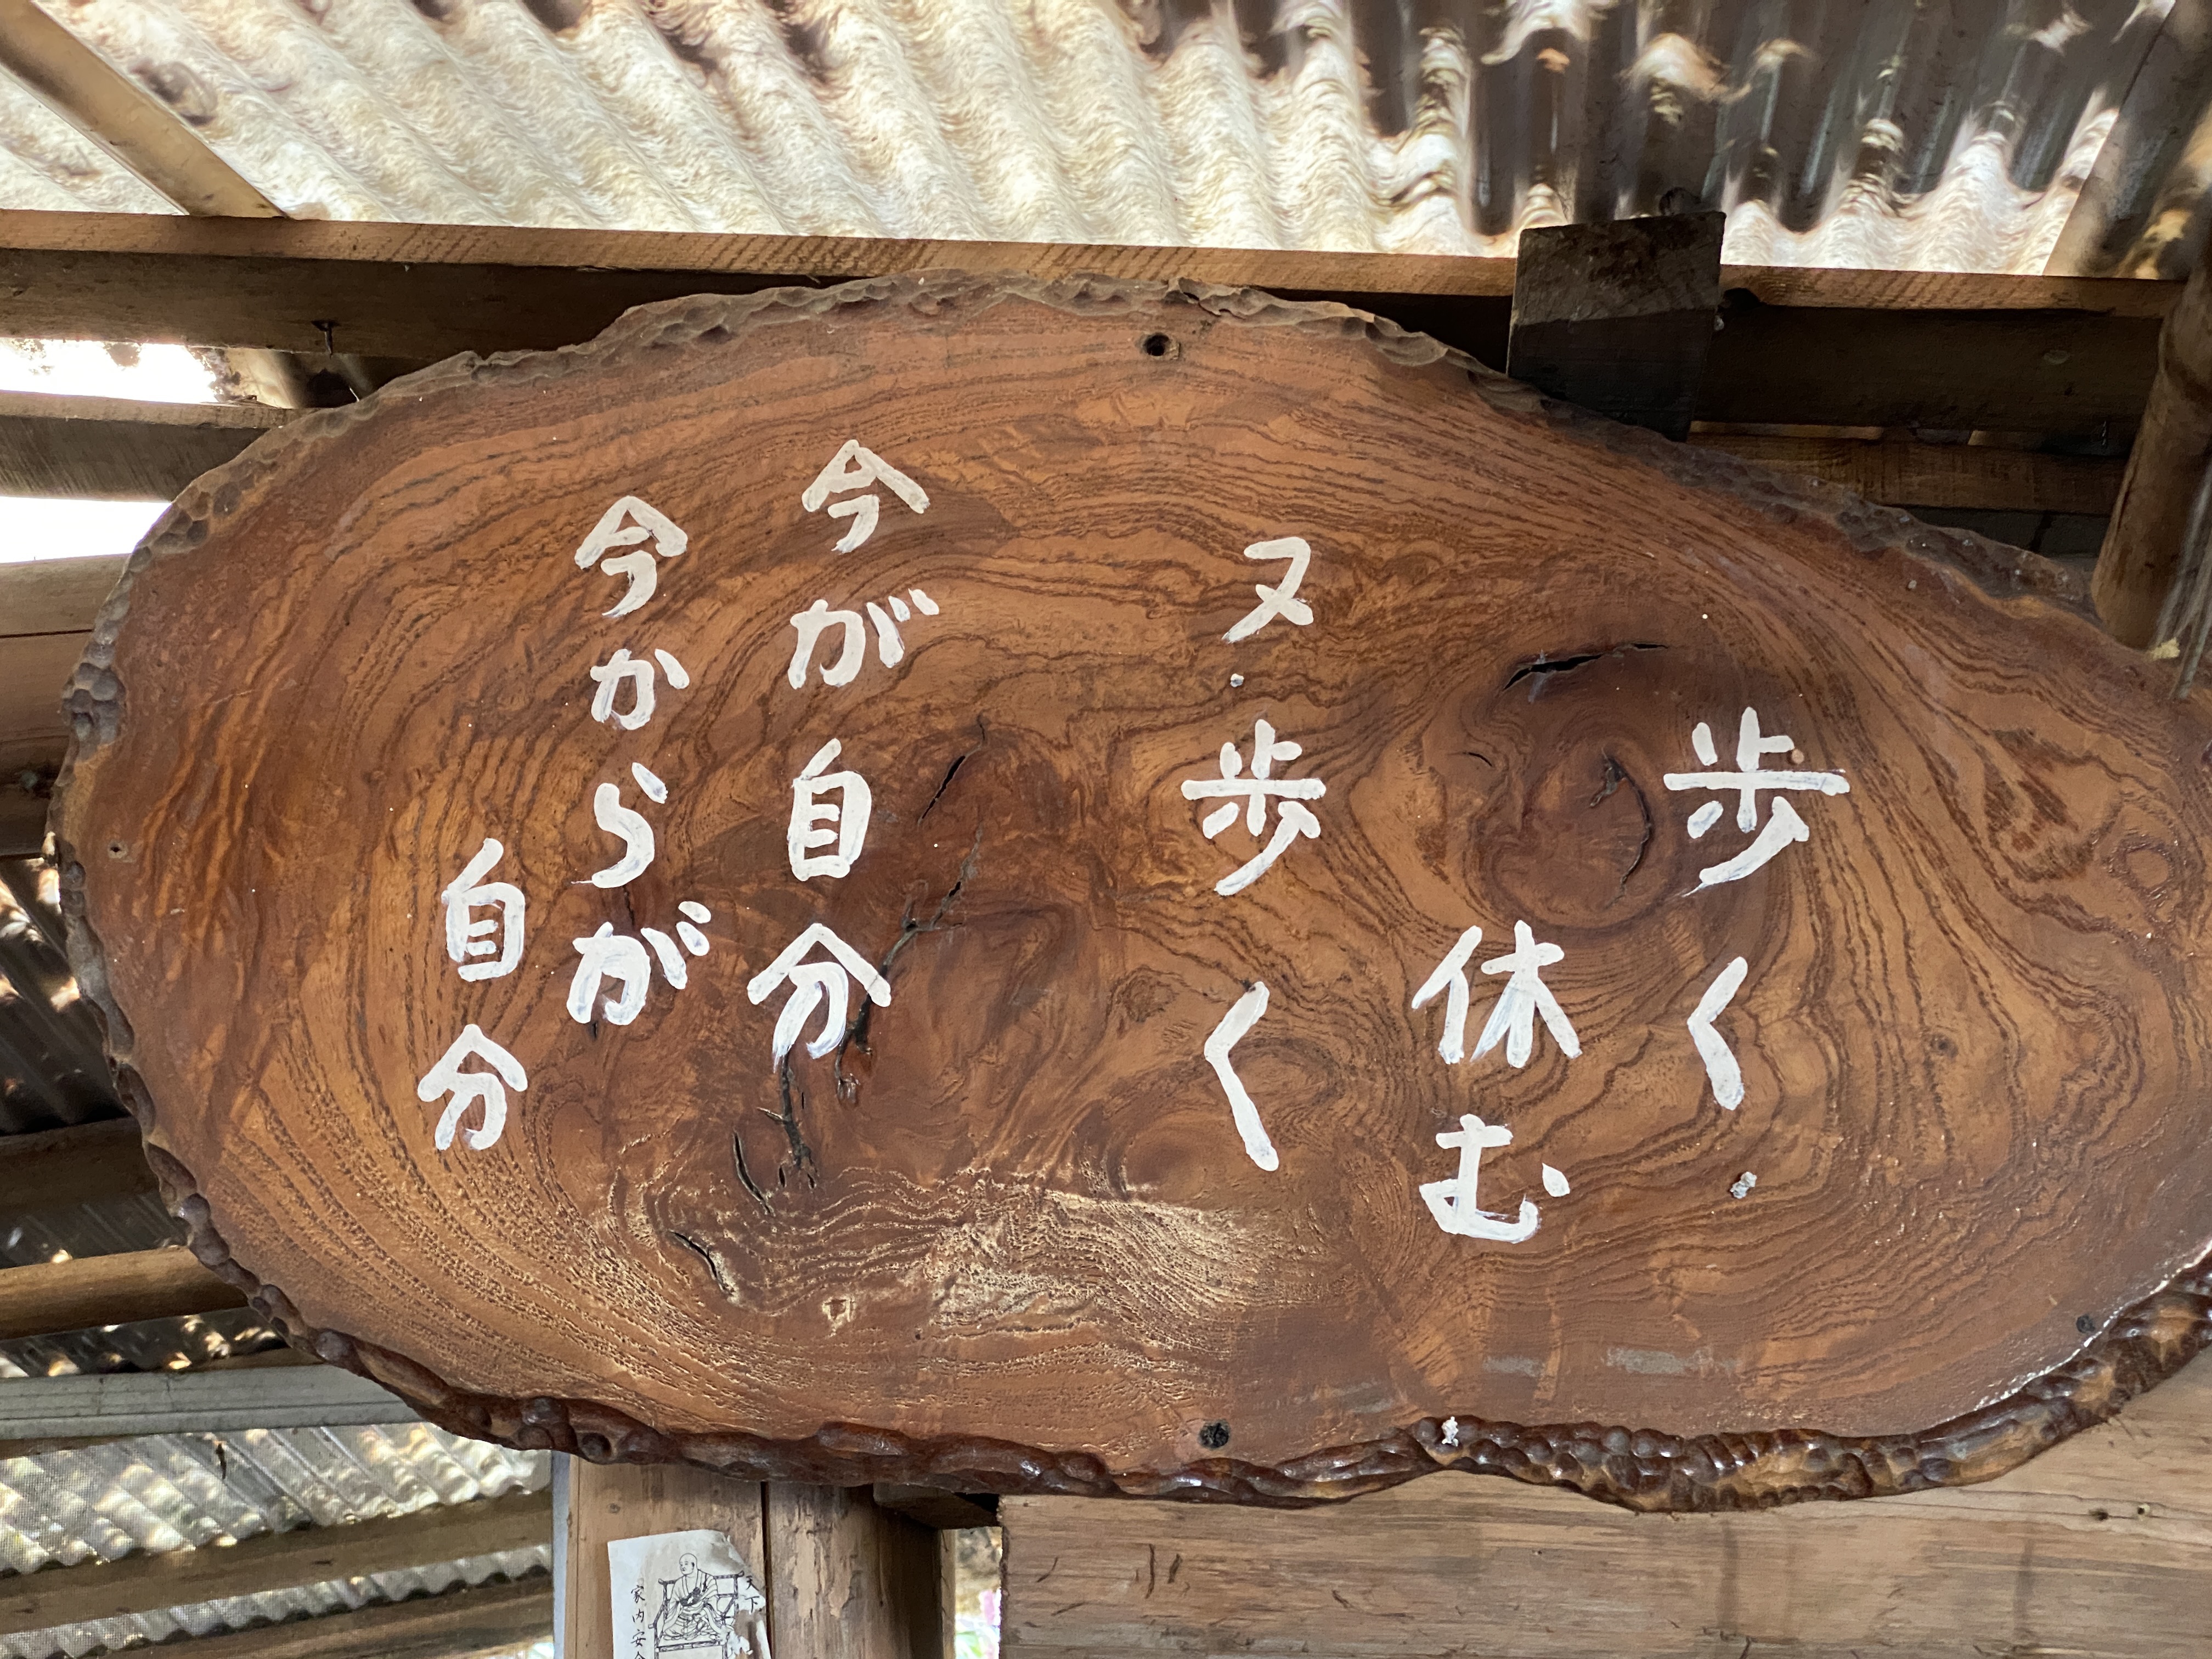 歩く
休む
又歩く
今が自分
今からが
自分
天下
家内安